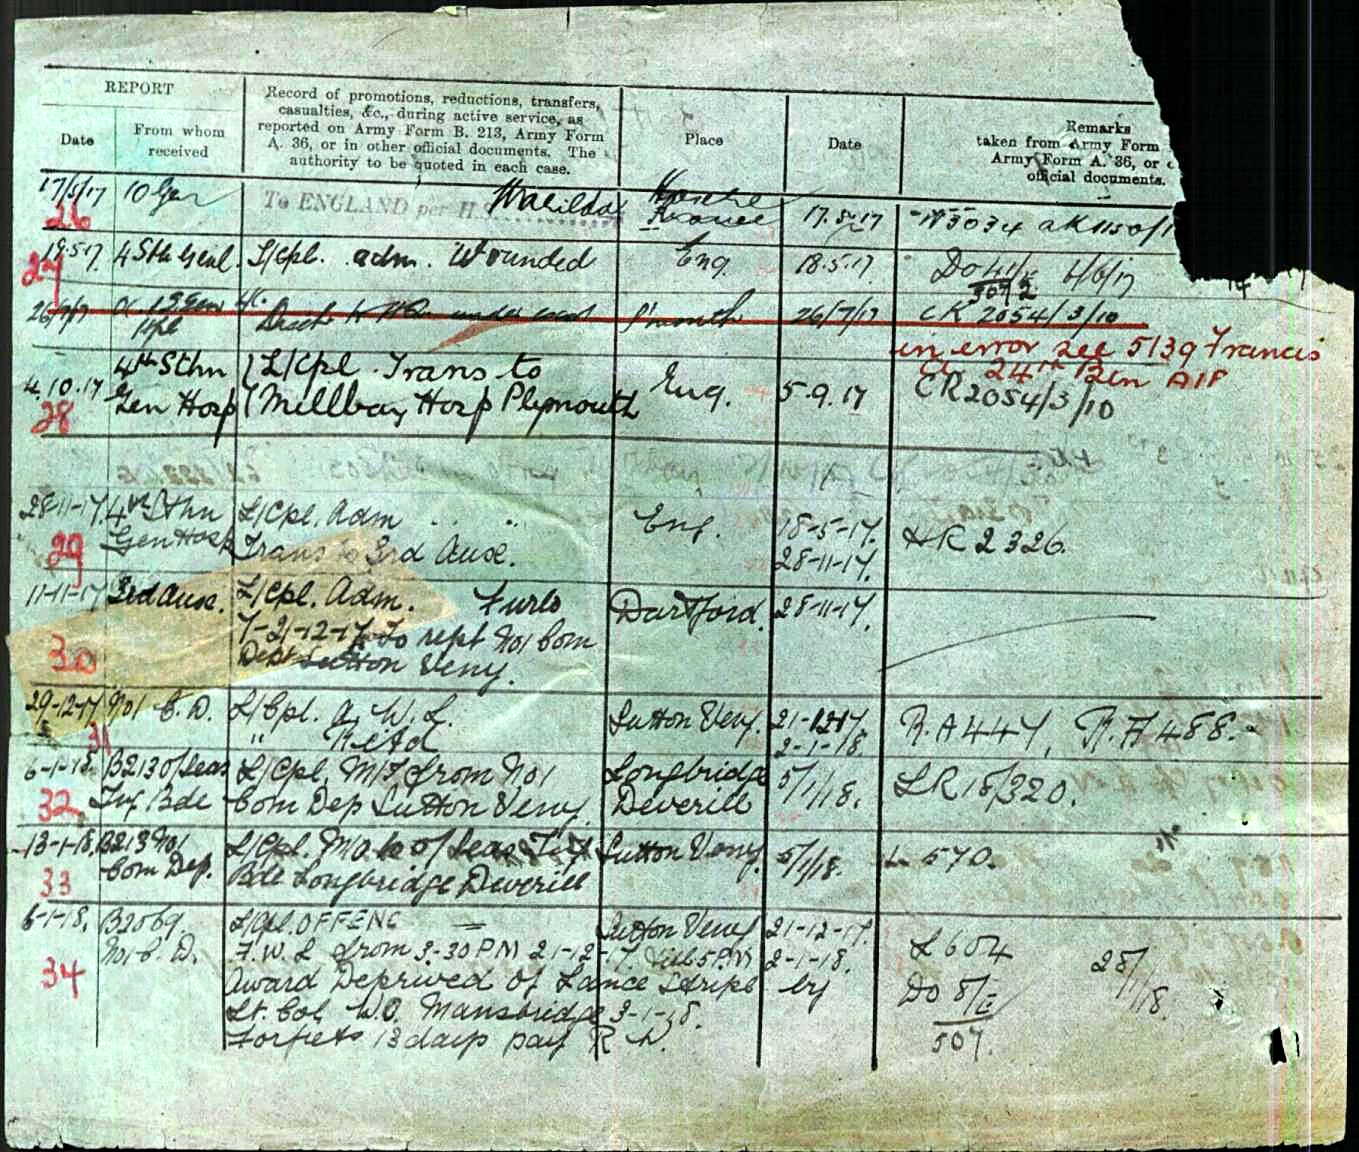 REPORT
Record of promotions, reductions, transfers,
casualties, &c., during active service, as
reported on Army Form B. 213, Army Form
A. 36, or in other official documents. The
authority to be quoted in each case.
Date
From whom
received
Place
Date
Remarks
taken from Army Form
Army Form A. 36, or
official documents.
17/5/17 10 Gen To ENGLAND per H.S. 17.5.17
26
19.5.17 4 Sth Genl. L/Cpl. adm. Wounded Eng 18.5.17 DO 41/E 6/6/17
507
26/7/17 26/7/17 CK 2054/3/10
in error see 5139 Francis
24th Ben AIF
4.10.17 4th Sthn L/Cpl Trans to Eng. 5.9.17 CR2054/3/10
28 Gen Hosp Millbay Hosp Plymouth
28-11-17. 4th Sthn L/Cpl. Adm " " Eng. 18-5-17.
29 Gen Hosp Trans to 3rd Auxe. 28-11-17. HR 2326.
11-11-17 3rd Auxe. L/Cpl. Adm. Furlo Dartford. 28-11-17.
7-21-12-17 To rept No1 Com
30 Dept Sutton Veny.
29-12-17 No1 C. D. L/Cpl. A. W. L. Sutton Veny. 21-12-17. R.A 447, R.A 488.
31 " Retd 2-1-18.
6-1-18. B213 O/Seas L/Cpl. M/I from No1 Longbridge 5/1/18. LR 18/320.
32 Tng Bde Com Dep Sutton Veny Deverill
13-1-18. B213 No1 L/Cpl. M/O to O/Seas Tng Sutton Veny. 5/1/18. L 570.
33 Com Dep. Bde Longbridge Deverill
6-1-18. B2069. L/Cpl. OFFENC = Sutton Veny 21-12-17. L604
No1 C. D. A. W. L from 3-30 PM 21-12-17. till 5 PM 2-1-18. 28/1/18.
34 Award Deprived of Lance Stripe by DO 8/E
Lt. Col W.O. Mansbridge 3-1-18. 507.
Forfeits 13 days pay R W.